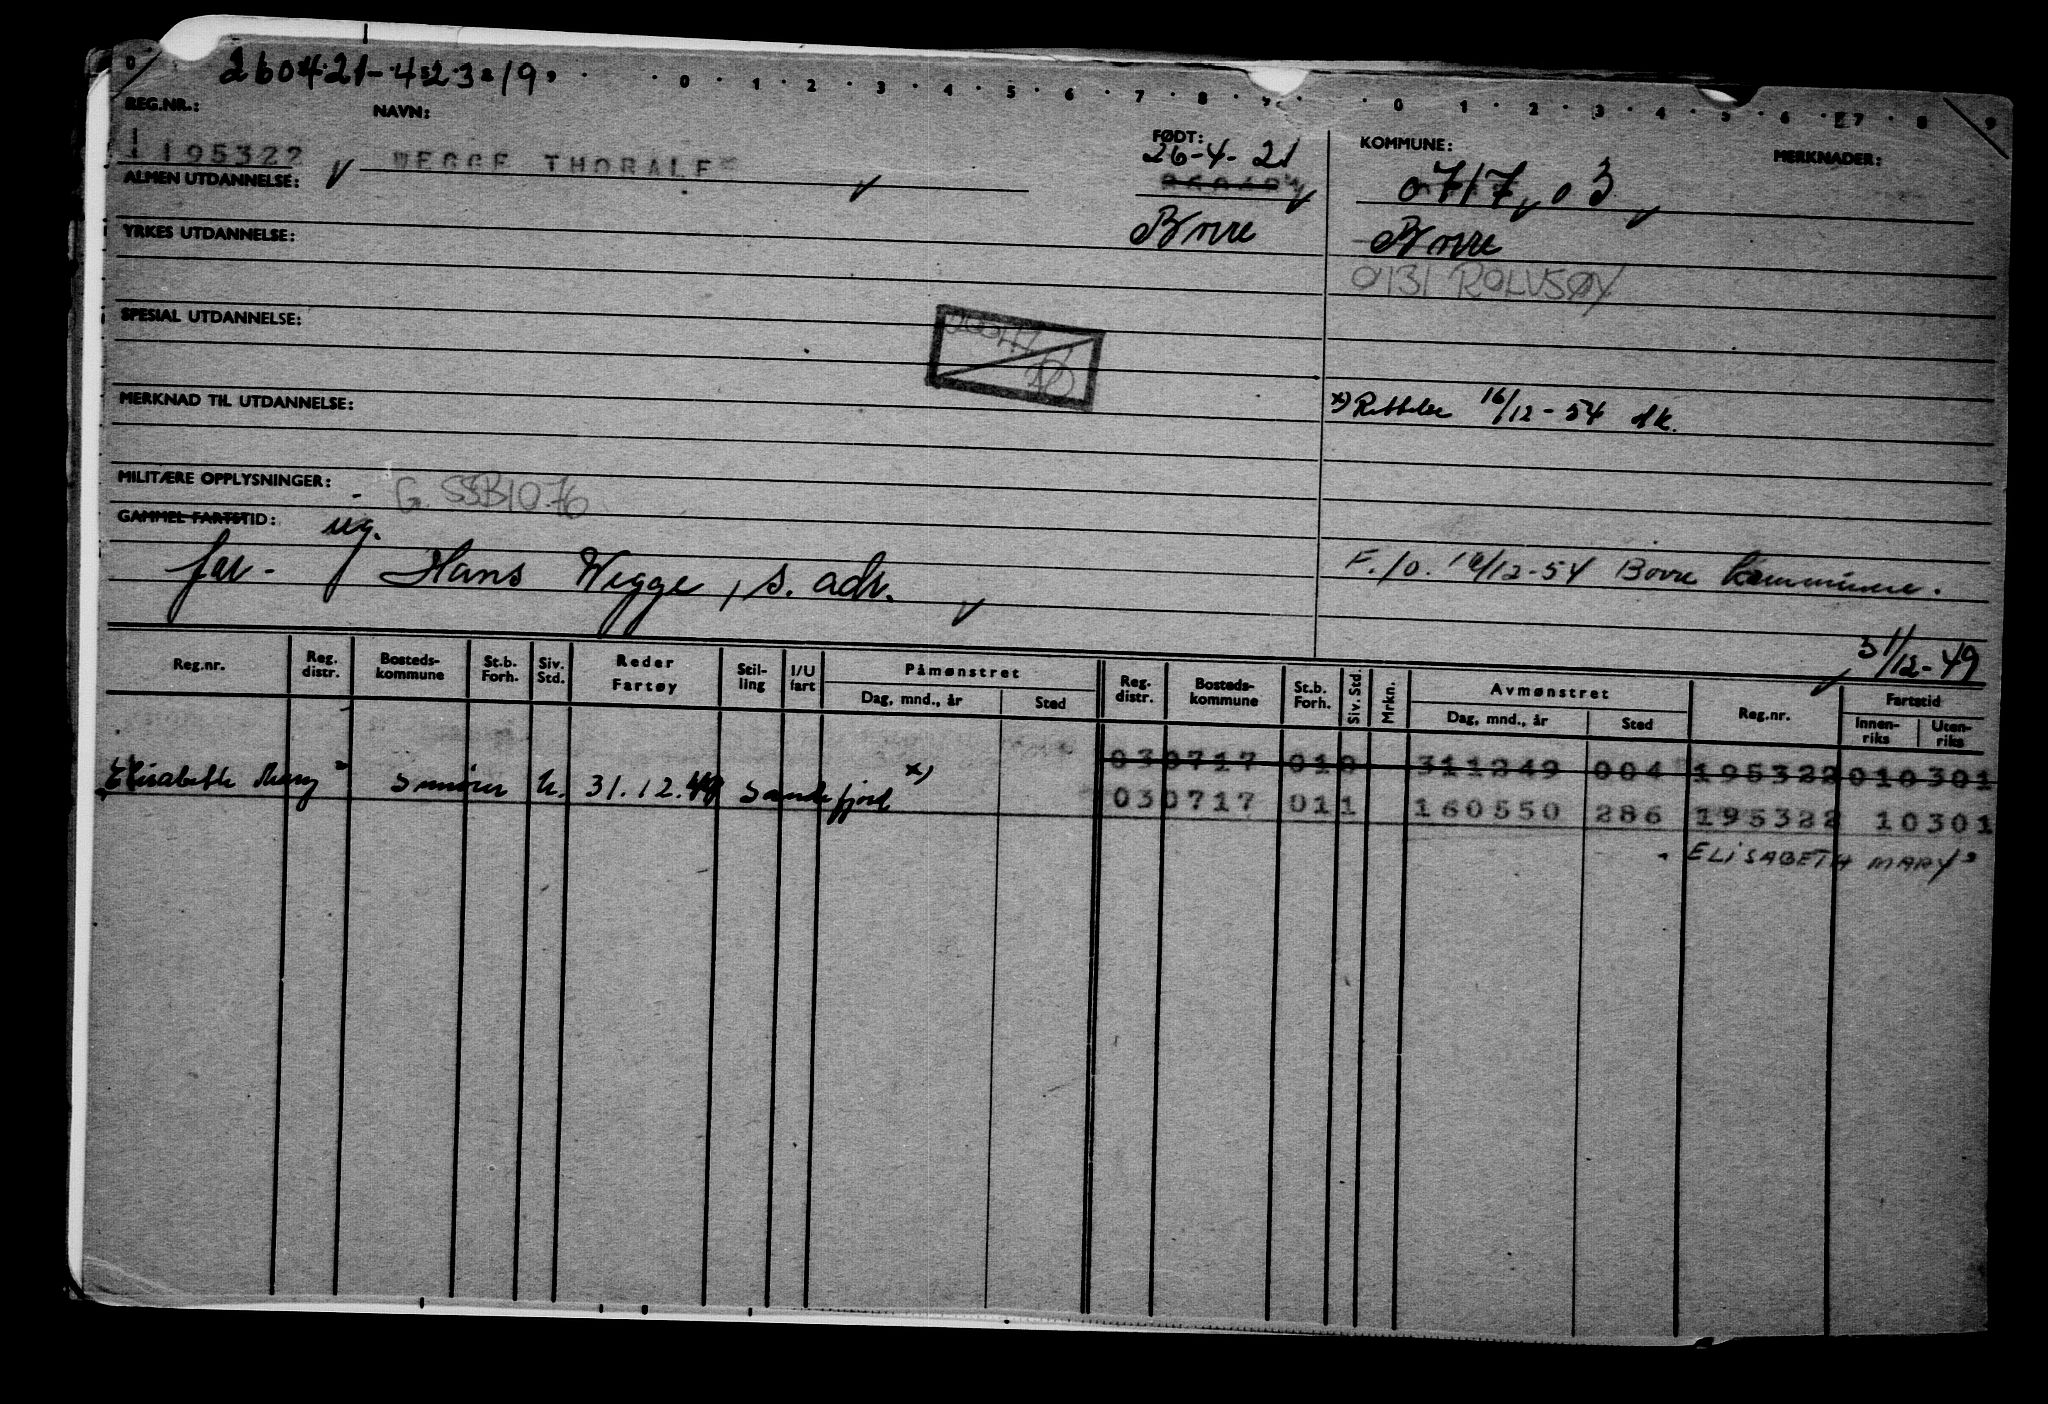 260421-42319
0 · 1 · 2 · 3 · 4 · 5 · 6 · 7 · 8 · 9 · 0 · 1 · 2 · 3 · 4 · 5 · 6 · 7 · 8 · 9
REG.NR.: NAVN: FØDT: KOMMUNE: MERKNADER:
195322 WEGGE THORALF 26-4-21 0717, 03
ALMEN UTDANNELSE:
YRKES UTDANNELSE: Borre Borre
0131 ROLVSØY
SPESIAL UTDANNELSE:
MERKNAD TIL UTDANNELSE: x) 16/12-54
MILITÆRE OPPLYSNINGER: G. SSB10.76
GAMMEL FARTSTID: ug.
far - Hans Wegge, s. adr. F./o. 16/12-54 Borre kommune.
31/12-49
Reg.nr. Reg. distr. Bosteds- kommune St.b. Forh. Siv. Std. Reder Fartøy Stil- ling I/U fart Påmønstret Dag, mnd., år Sted Reg. distr. Bosteds- kommune St.b. Forh. Siv. Std. Mrkn. Avmønstret Dag, mnd., år Sted Reg.nr. Fartstid Innen- riks Uten- riks
030717 010 311249 004 195322 010301
Elisabeth Mary" Smører U. 31.12.49 Sandefjord x)
030717 011 160550 286 195322 10301
"ELISABETH MARY"